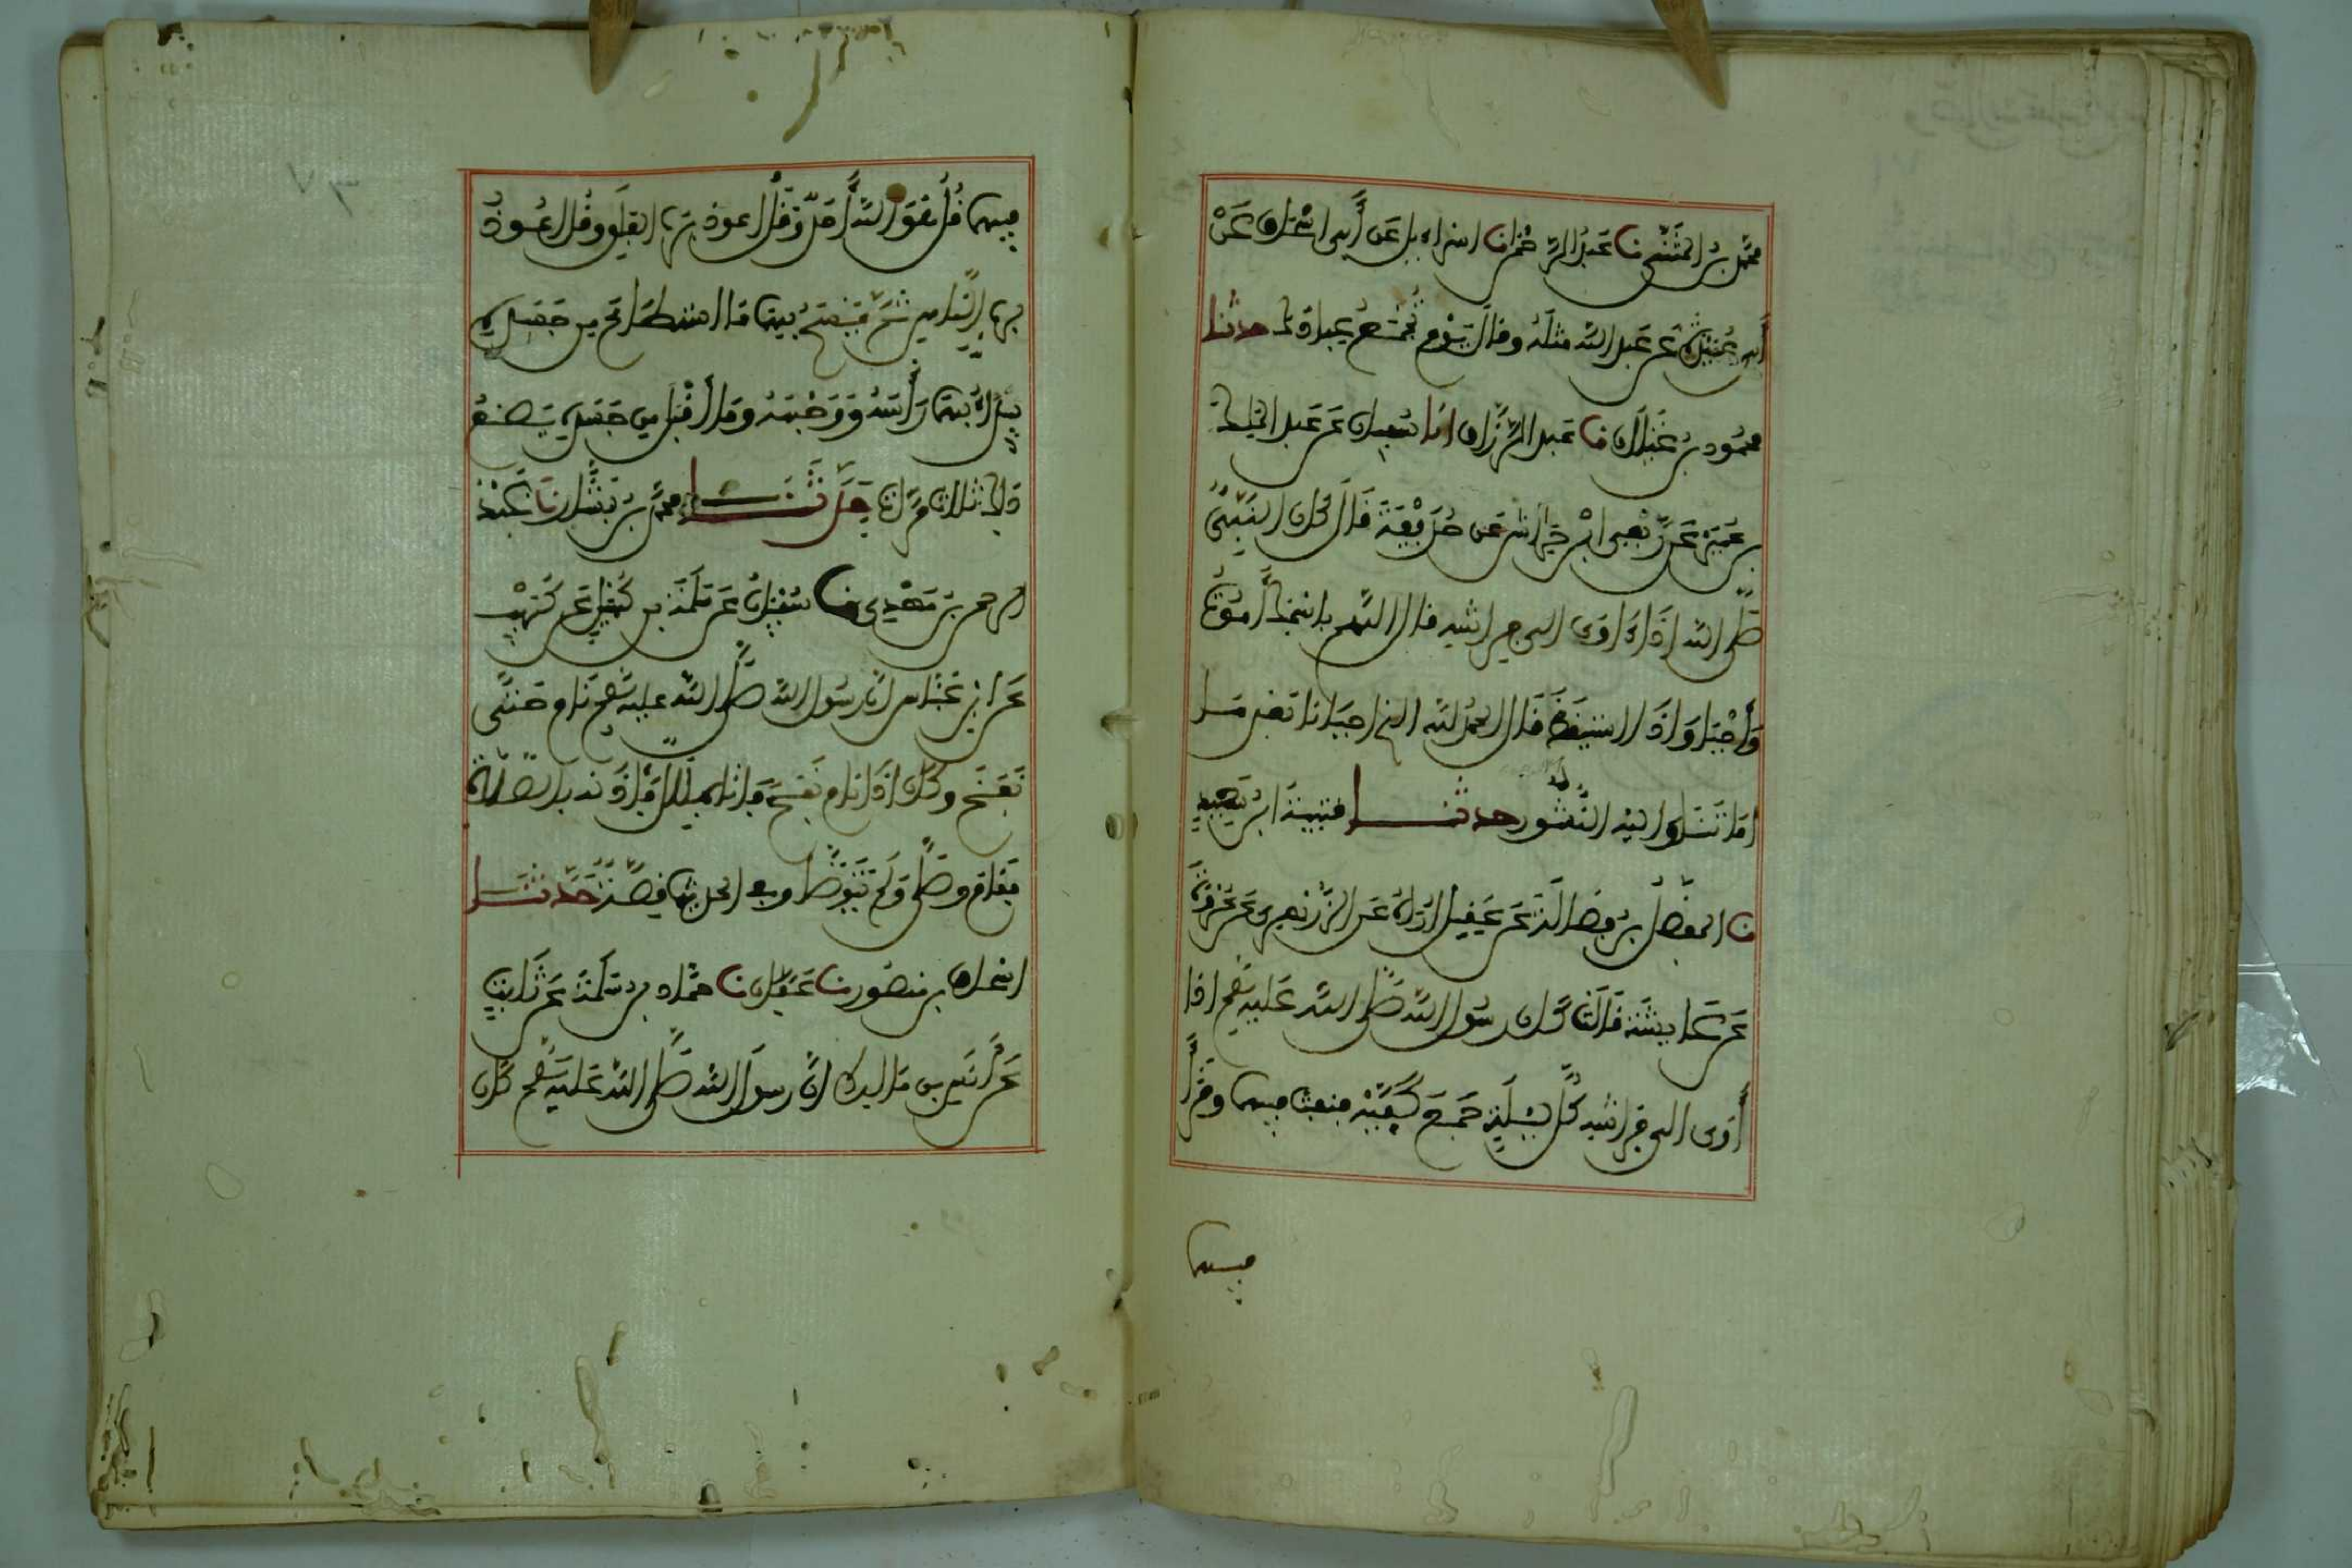 محمد بن المثنى نا عبد الرحمن نا اسراءيل عن أبي اسحاق عن
أبي عبيدة عن عبد الله مثله وقال يوم تجمع عبادك حدثنا
محمود بن غيلان نا عبد الرزاق انا سفيان عن عبد الملك
بن عمير عن ربعي ابن حراش عن حذيفة قال كان النبي
صلى الله اذا اوى الى فراشه قال اللهم باسمك أموت
وأحيا واذا استيقظ قال الحمد لله الذي احيانا بعد ما
اماتنا واليه النشور حدثنا قتيبة ابن سعيد
نا المفضل بن فضالة عن عقيل اراه عن الزهري عن عروة
عن عايشة قالت كان رسول الله صلى الله عليه وسلم اذا
أوى الى فراشه كل ليلة جمع كفيه فنفث فيهما وقرأ
فيهما
فيهما قل هو الله أحد وقل اعوذ برب الفلق وقل اعوذ
برب الناس ثم مسح بهما ما استطاع من جسده
يبدأ بهما رأسه ووجهه وما أقبل من جسده يصنع
ذلك ثلاث مرات حدثنا محمد بن بشار نا عبد
الرحمن بن مهدي نا سفيان عن سلمة بن كهيل عن كريب
عن ابن عباس ان رسول الله صلى الله عليه وسلم نام حتى
نفخ وكان اذا نام نفخ فاتاه بلال فاذنه بالصلاة
فقام وصلى ولم يتوضا وفي الحديث قصة حدثنا
اسحاق بن منصور نا عفان نا حماد بن سلمة عن ثابت
عن أنس بن مالك ان رسول الله صلى الله عليه وسلم كان